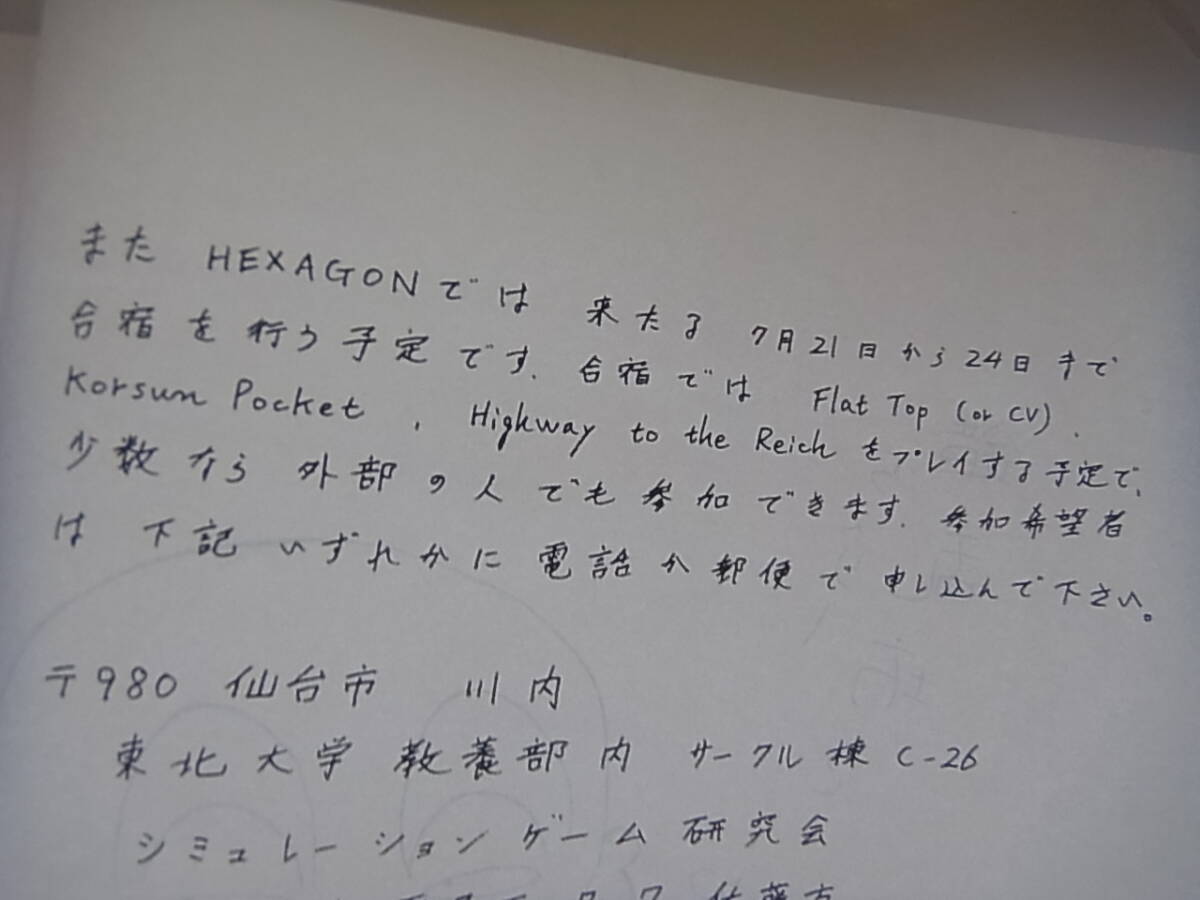 また HEXAGONでは 来たる 7月21日から24日まで
合宿を行う予定です. 合宿では Flat Top (or CV).
Korsun Pocket , Highway to the Reich をプレイする予定で,
少数なら外部の人でも参加できます. 参加希望者
は 下記いずれかに電話か郵便で申し込んで下さい。
〒980 仙台市 川内
東北大学 教養部内 サークル棟 C-26
シミュレーションゲーム研究会